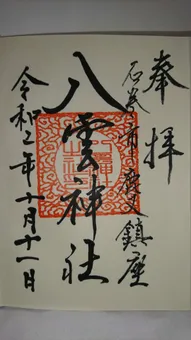 奉拝
石巻市鹿又鎮座
八雲神社
令和年月十一日